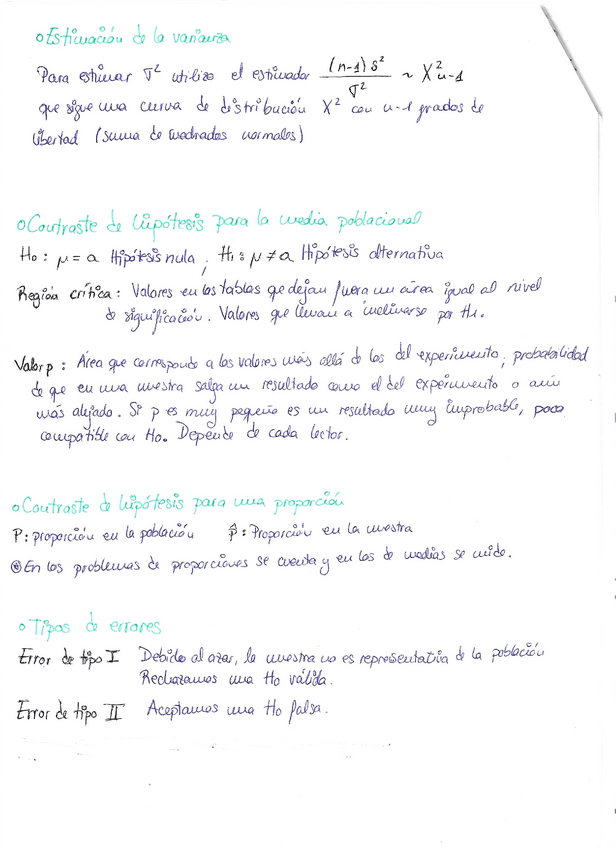 ○Estimación de la varianza
Para estimar σ² utilizo el estimador (n-1)s²/σ² ~ X²n-1
que sigue una curva de distribución X² con n-1 grados de
libertad (suma de cuadrados normales)
○Contraste de hipótesis para la media poblacional
Ho: μ = a Hipótesis nula ; H1: μ ≠ a Hipótesis alternativa
Región crítica: Valores en las tablas que dejan fuera un área igual al nivel
de significación. Valores que llevan a inclinarse por H1.
Valor p: Área que corresponde a los valores más allá de los del experimento; probabilidad
de que en una muestra salga un resultado como el del experimento o aún
más alejado. Si p es muy pequeño es un resultado muy improbable, poco
compatible con Ho. Depende de cada lector.
○Contraste de hipótesis para una proporción
P: proporción en la población p̂: Proporción en la muestra
⊛En los problemas de proporciones se cuenta y en los de medias se mide.
○Tipos de errores
Error de tipo I Debido al azar, la muestra no es representativa de la población
Rechazamos una Ho válida.
Error de tipo II Aceptamos una Ho falsa.